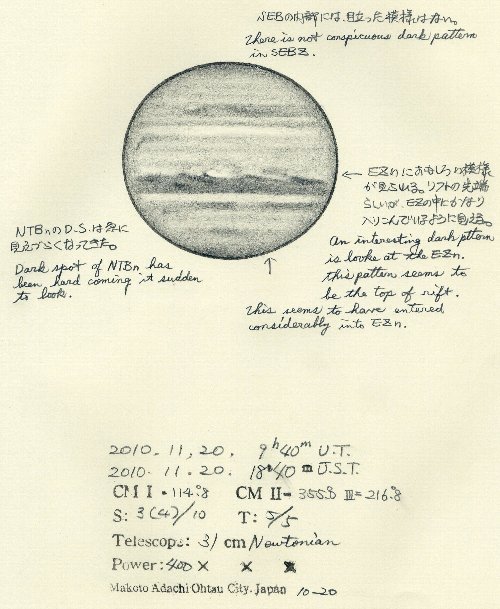 SEBの内部には、目立った模様はない。
there is not conspicuous dark pattern
in SEBZ.
EZnにおもしろい模様
が見られる。リフトの先端
らしいが、EZの中にかなり
入りこんでいるように見える。
An interesting dark pttern
is looks at the EZn.
this pattern seems to
be the top of rift.
this seems to have entered
considerably into EZn.
NTBnのD.S.は急に
見えづらくなってきた。
Dark spot of NTBn has
been hard coming it sudden
to look.
2010. 11, 20. 9h 40m U.T.
2010. 11. 20. 18h 40m J.S.T.
CM I = 114.°8 CM II = 355.°8 III = 216.°8
S: 3(4)/10 T: 5/5
Telescope: 31 cm/Newtonian
Power: 400 × × ×
Makoto Adachi Ohtsu City. Japan 10-20